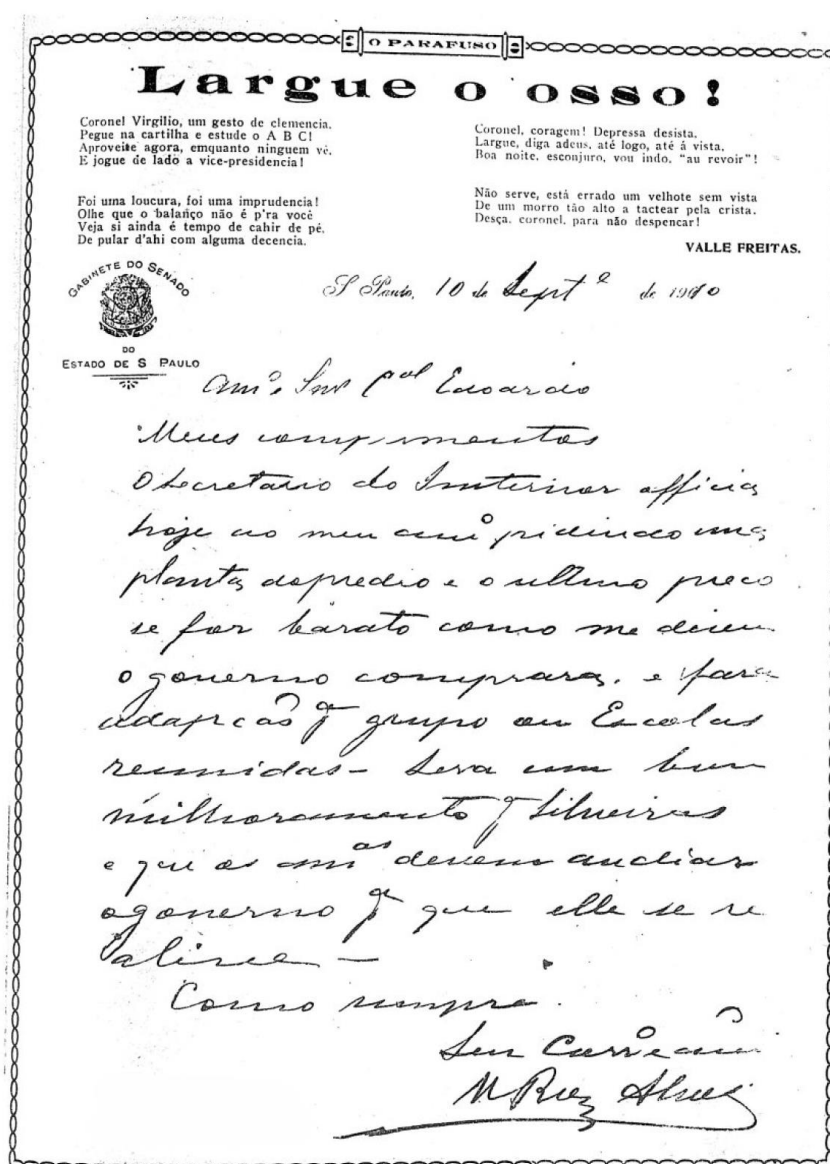 O PARAFUSO
Largue o osso!
Coronel Virgilio, um gesto de clemencia.
Pegue na cartilha e estude o A B C!
Aproveite agora, emquanto ninguem vé,
E jogue de lado a vice-presidencia!
Foi uma loucura, foi uma imprudencia!
Olhe que o balanço não é p'ra você
Veja si ainda é tempo de cahir de pé,
De pular d'ahi com alguma decencia.
Coronel, coragem! Depressa desista.
Largue, diga adeus, até logo, até á vista,
Boa noite, esconjuro, vou indo, "au revoir"!
Não serve, está errado um velhote sem vista
De um morro tão alto a tactear pela crista.
Desça, coronel, para não despencar!
VALLE FREITAS.
GABINETE DO SENADO
DO
ESTADO DE S PAULO
S Paulo, 10 de Sept º de 1910
Amº e Snr Eduardo
Meus comprimentos
O Secretario do Innterior officia
hoje ao meu amº pidindo uma
planta do predio e o ultimo preco
se for barato como me disem
o governo comprara, e para
adapcão pª grupo ou Escolas
reunidas - Sera um bom
milhoramento pª Silveiras
e que os amºs devem auchiar
o governo pª que elle se re
alise -
Como sempre.
Seu Corrº e amº